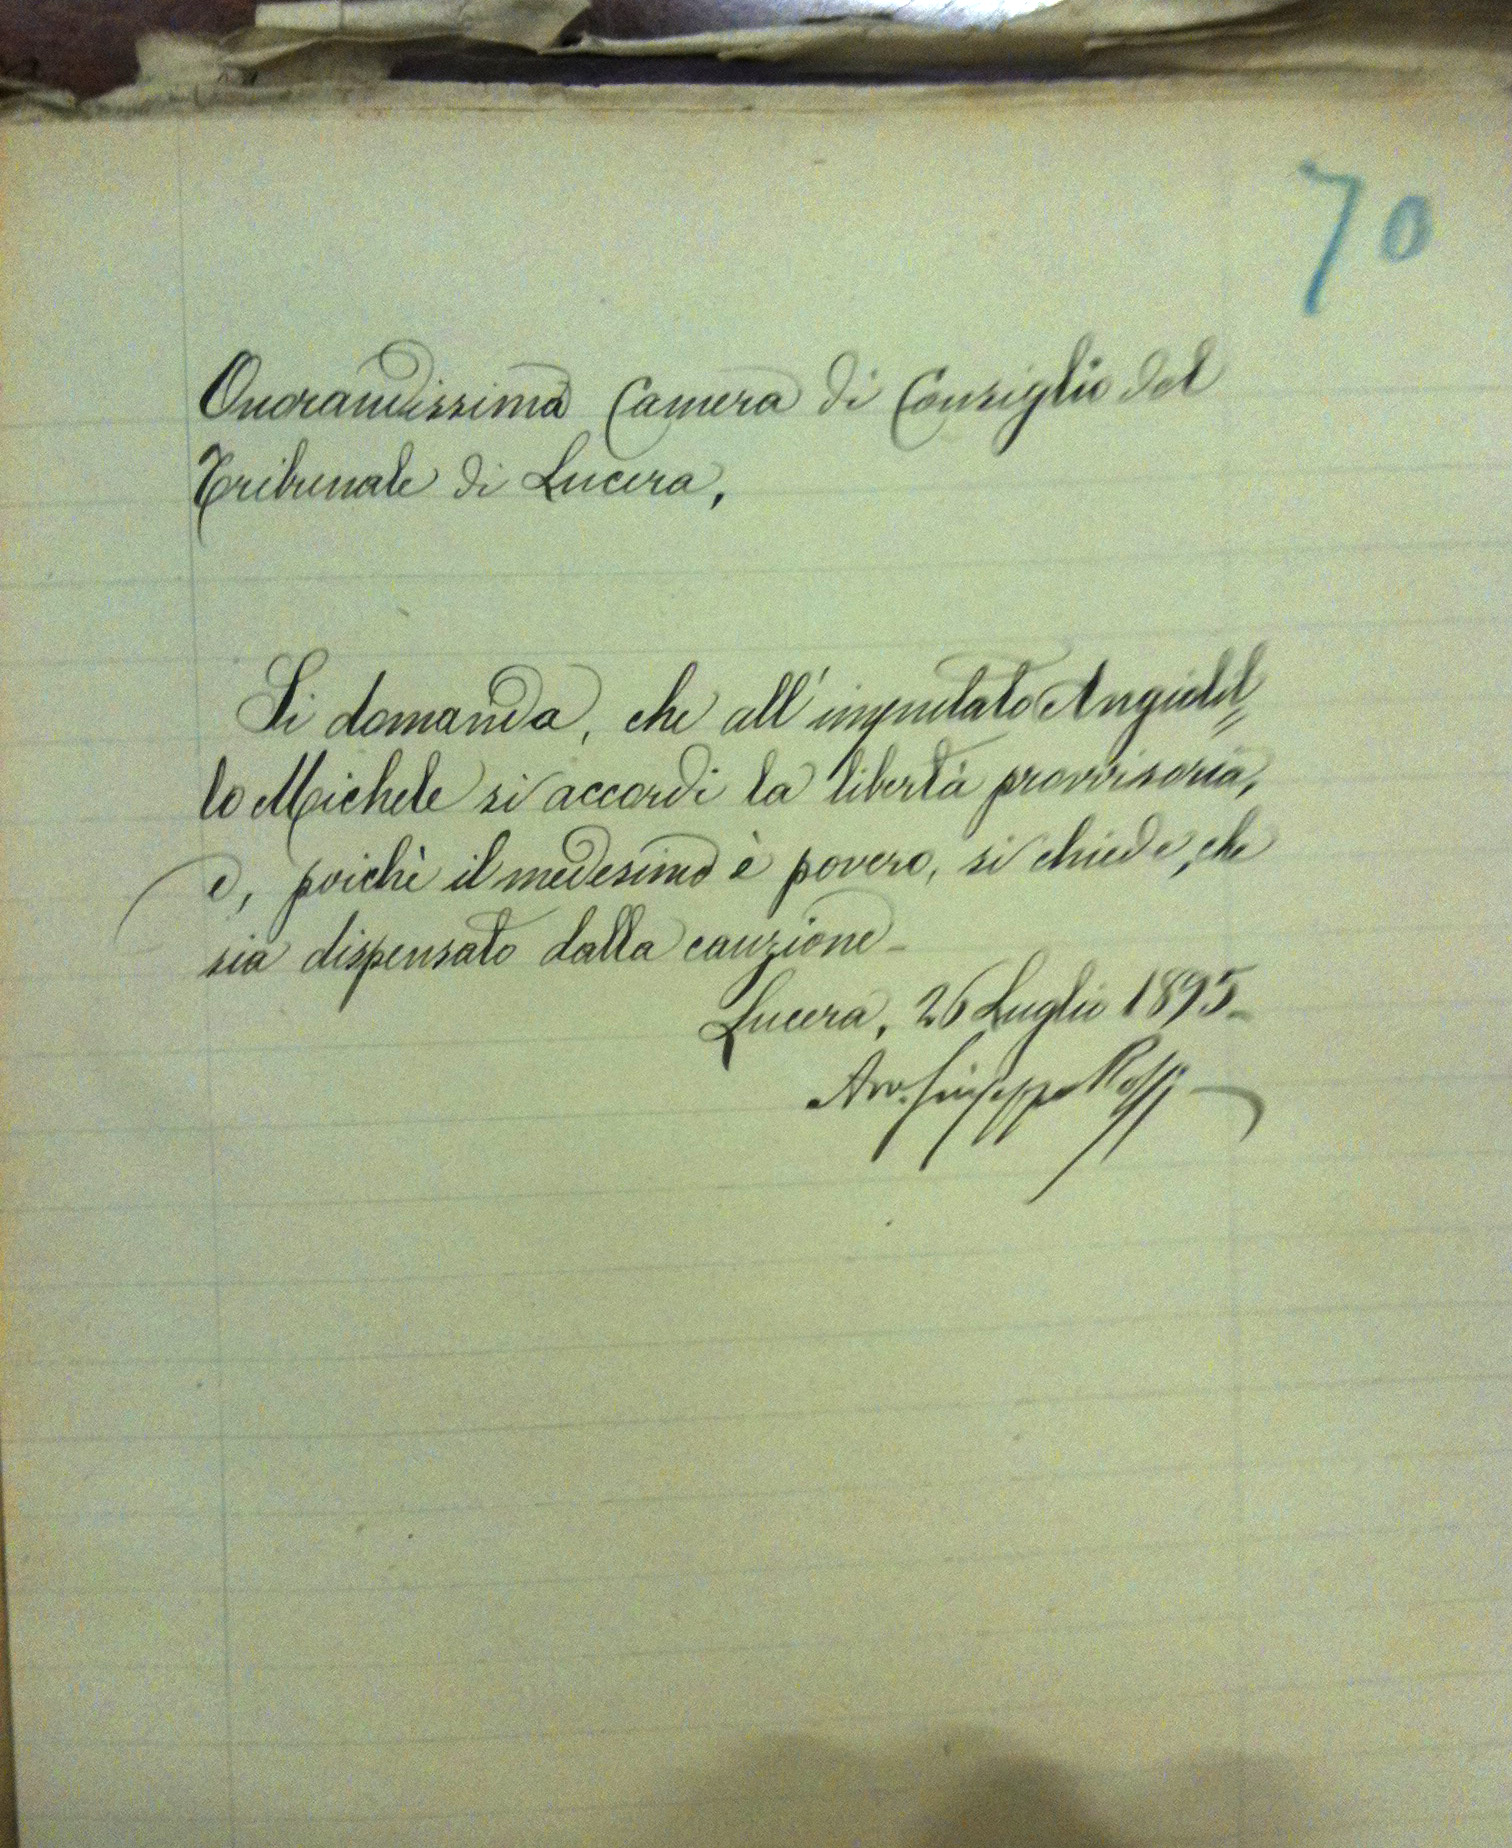 70
Onorandissima Camera di Consiglio del
Tribunale di Lucera,
Si domanda, che all'imputato Angiolil=
lo Michele si accordi la libertà provvisoria,
e, poichè il medesimo è povero, si chiede, che
sia dispensato dalla cauzione_
Lucera, 26 Luglio 1895_
Avv. Giuseppe Rossi